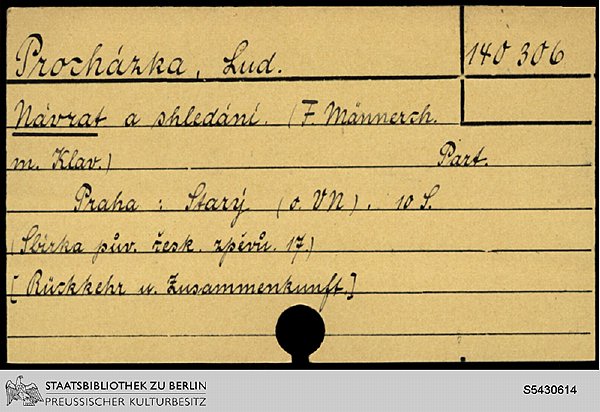 Procházka, Lud.
140 306
Návrat a shledání. (F. Männerch.
m. Klav.) Part.
Praha : Starý (o. VN). 10 S.
(Sbírka pův. česk. zpěvů. 17)
[Rückkehr u. Zusammenkunft.]
STAATSBIBLIOTHEK ZU BERLIN
PREUSSISCHER KULTURBESITZ
S5430614